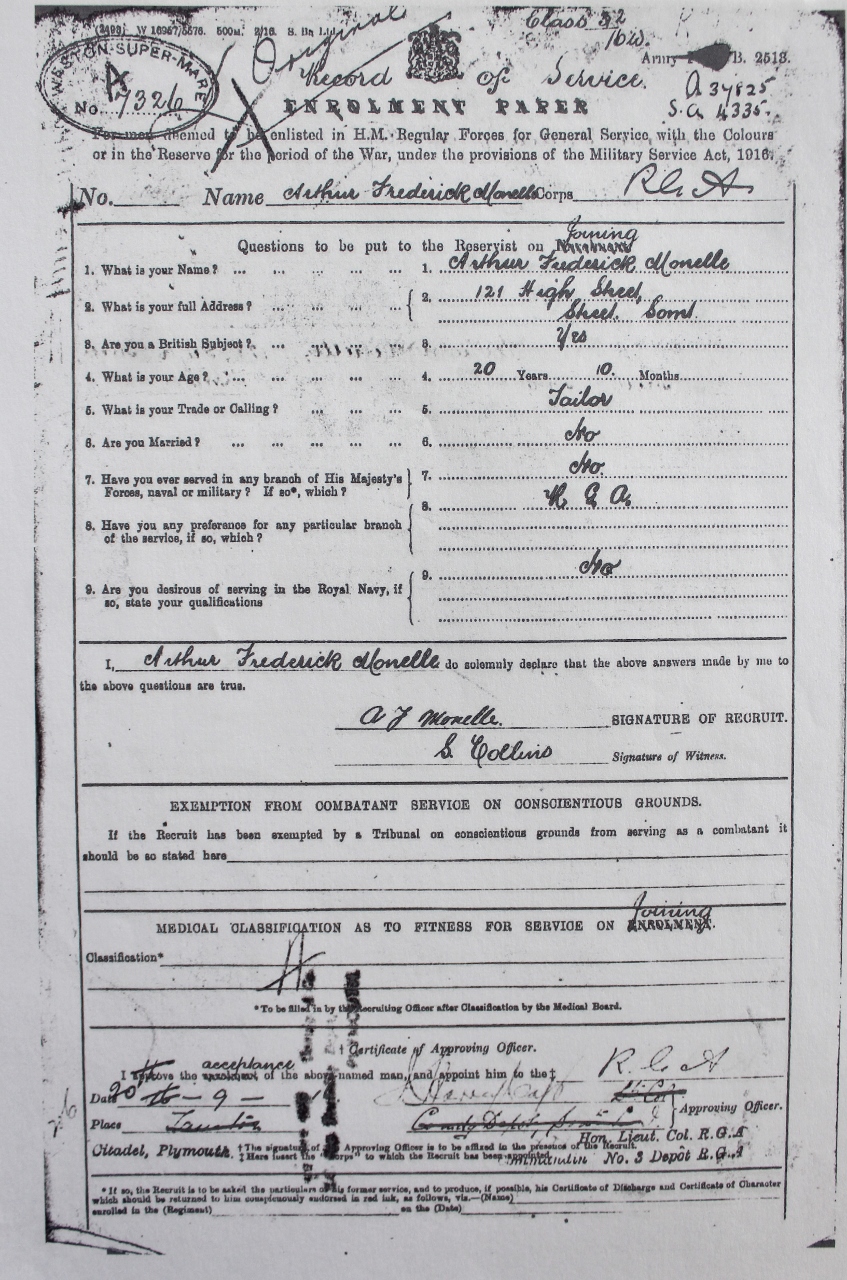 (2499) W 16967/5576. 500m. 2/16. S. Bn Ltd. Original Class 32
1613.
Army B. 2513.
WESTON-SUPER-MARE
A
No. 7326
Record of Service.
A 37825
S.A. 4335.
ENROLMENT PAPER
For men deemed to be enlisted in H.M. Regular Forces for General Service, with the Colours
or in the Reserve for the period of the War, under the provisions of the Military Service Act, 1916.
No. Name Arthur Frederick Monelle Corps R G A
Joining
Questions to be put to the Reservist on Enrolment
1. What is your Name? ... ... ... ... 1. Arthur Frederick Monelle
2. What is your full Address? ... ... ... 2. 121 High Street,
Street. Somt.
3. Are you a British Subject? ... 3. Yes
4. What is your Age? ... ... ... ... 4. 20 Years 10. Months
5. What is your Trade or Calling? ... ... 5. Tailor
6. Are you Married? ... ... ... ... 6. No
7. Have you ever served in any branch of His Majesty's 7. No.
Forces, naval or military? If so*, which?
8. R G A.
8. Have you any preference for any particular branch
of the service, if so, which?
9. No
9. Are you desirous of serving in the Royal Navy, if
so, state your qualifications
I, Arthur Frederick Monelle do solemnly declare that the above answers made by me to
the above questions are true.
A F Monelle. SIGNATURE OF RECRUIT.
S. Collins Signature of Witness.
EXEMPTION FROM COMBATANT SERVICE ON CONSCIENTIOUS GROUNDS.
If the Recruit has been exempted by a Tribunal on conscientious grounds from serving as a combatant it
should be so stated here
Joining
MEDICAL CLASSIFICATION AS TO FITNESS FOR SERVICE ON ENROLMENT.
Classification*
A
*To be filled in by the Recruiting Officer after Classification by the Medical Board.
† Certificate of Approving Officer.
acceptance
I approve the enrolment of the above-named man, and appoint him to the‡ R G A
Date 20 16 - 9 - Lt Col
Approving Officer.
Place Taunton Comdg Depot
Hon. Lieut. Col. R.G.A
Citadel, Plymouth. † The signature of Approving Officer is to be affixed in the presence of the Recruit.
‡ Here insert the "Corps" to which the Recruit has been appointed. No. 3 Depôt R.G.A
* If so, the Recruit is to be asked the particulars of his former service, and to produce, if possible, his Certificate of Discharge and Certificate of Character
which should be returned to him conspicuously endorsed in red ink, as follows, viz.—(Name)
enrolled in the (Regiment) on the (Date)